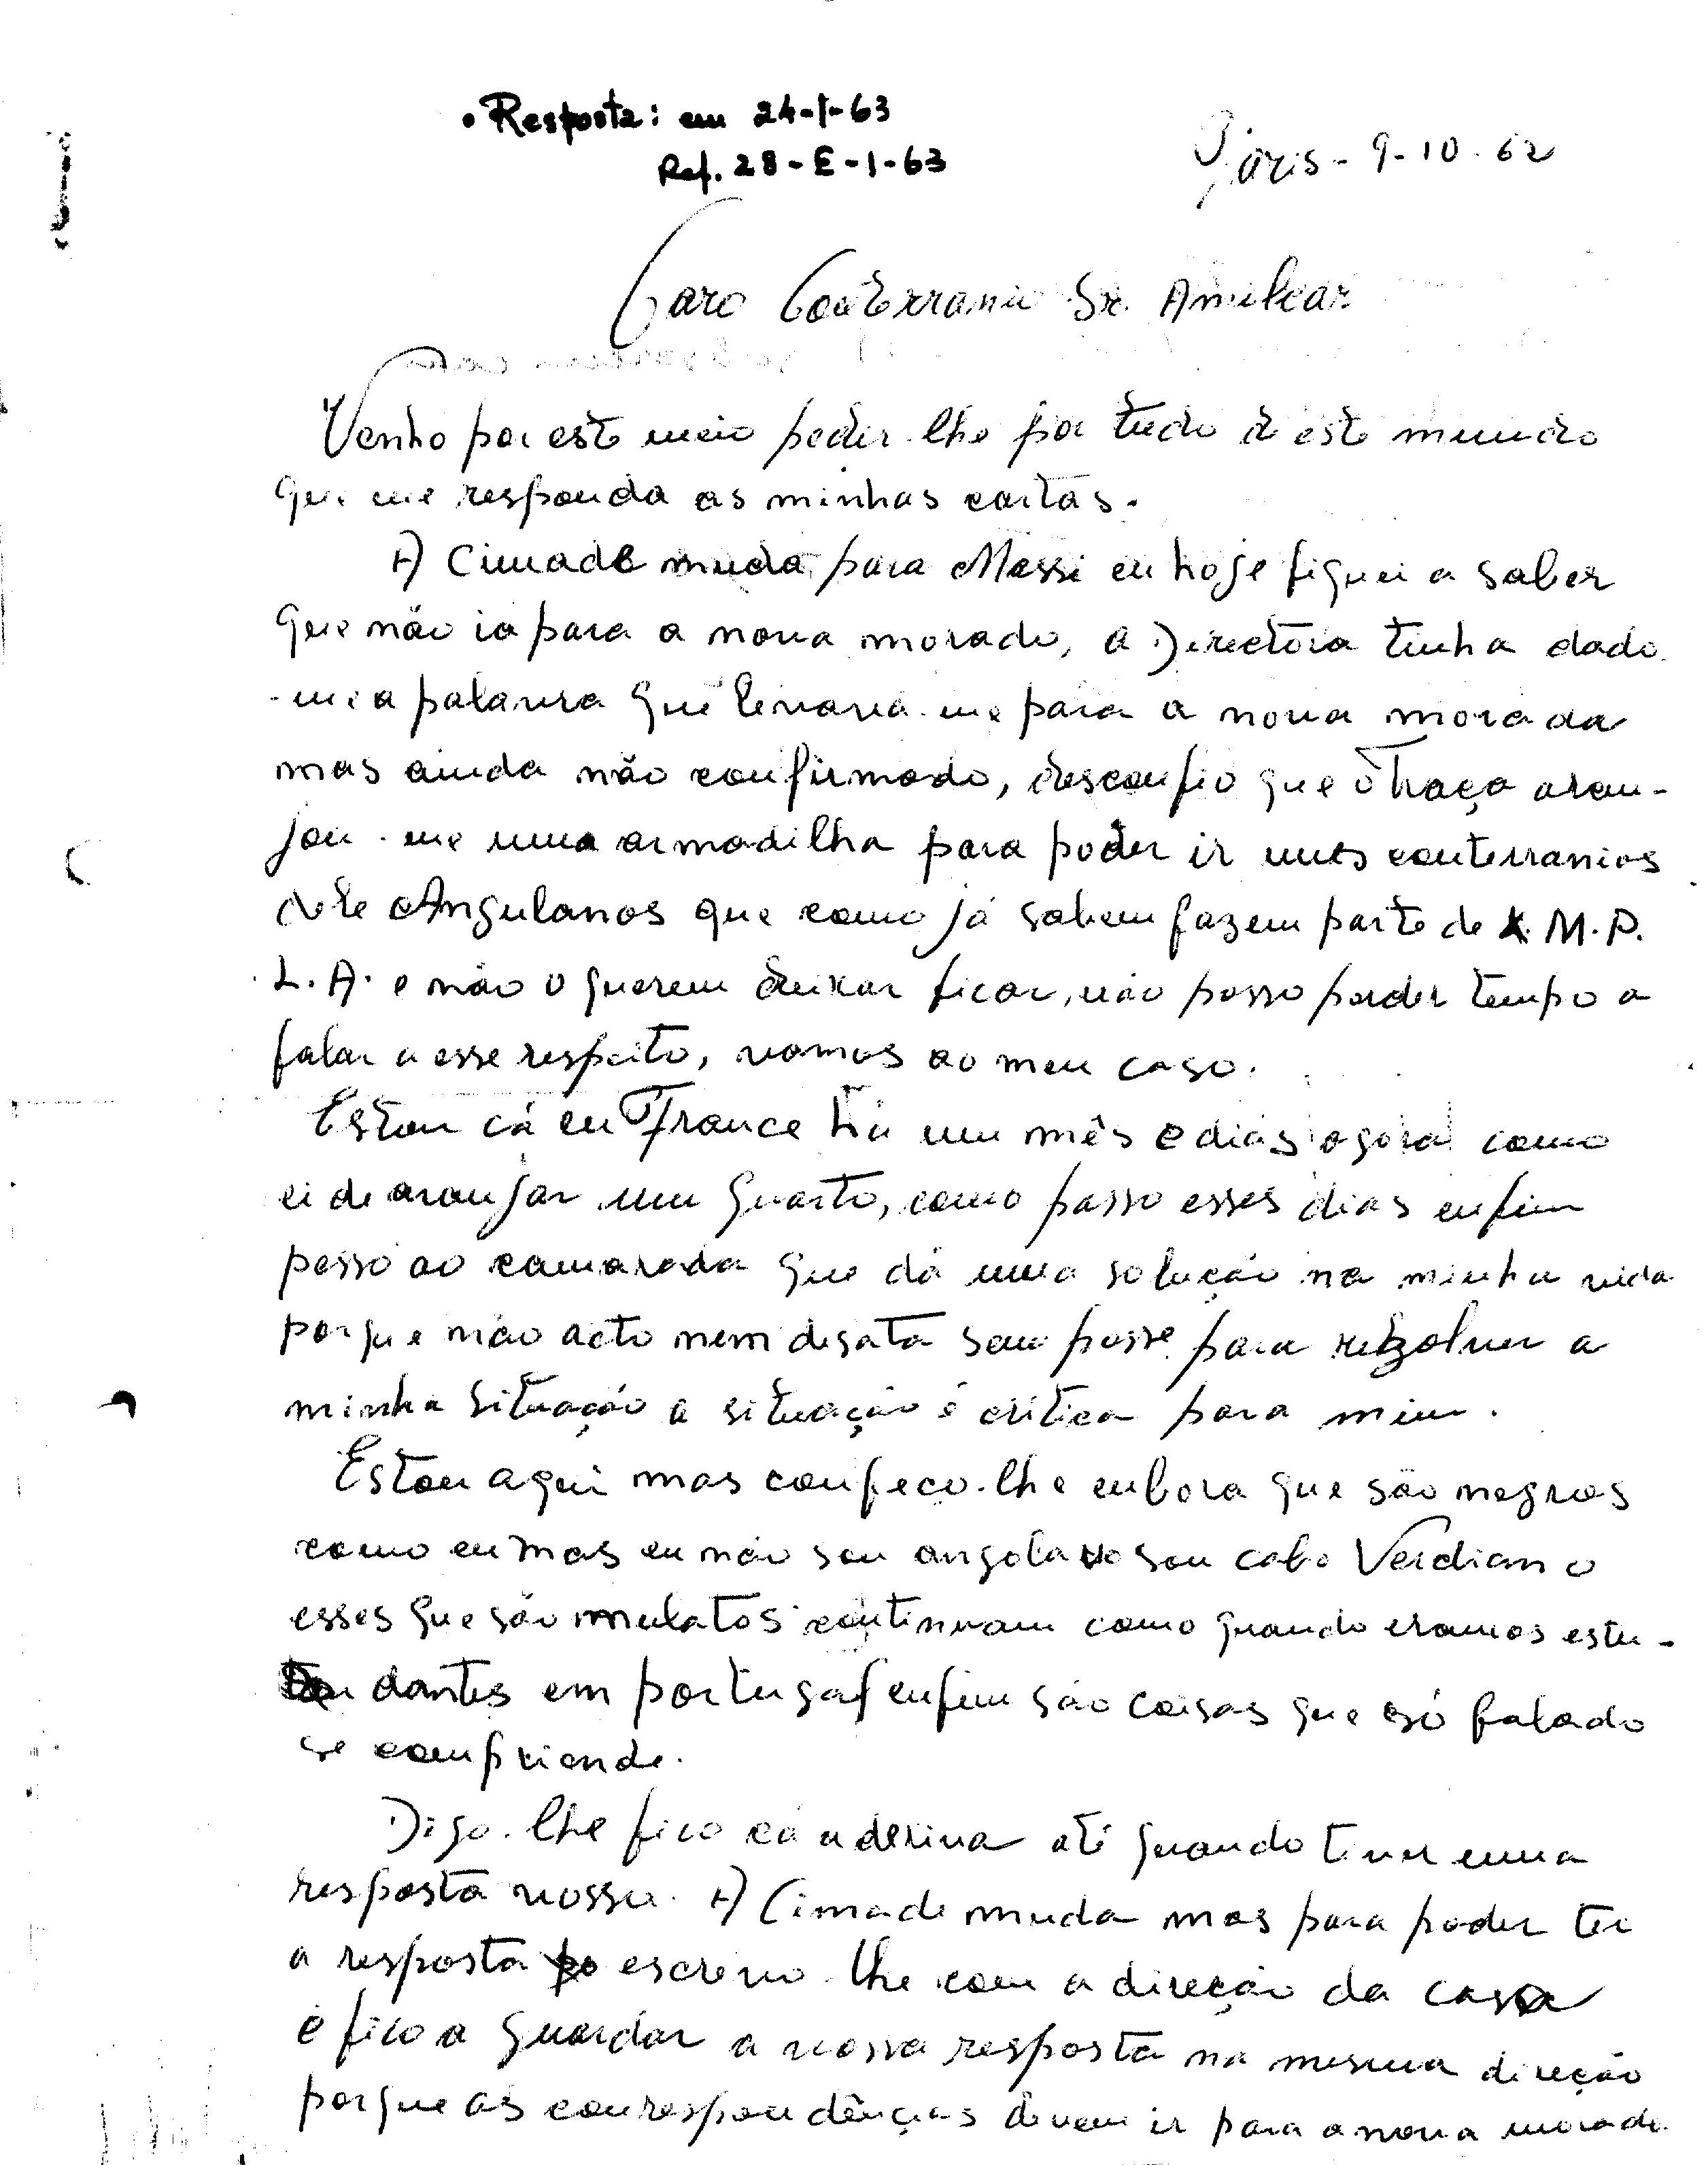 • Resposta: em 24-1-63
Ref. 28-E-1-63
Paris - 9-10-62
Caro Conterranio Sr. Amilcar
Venho por este meio pedir-lhe por tudo d este mundo
que me responda as minhas cartas.
A Cimade muda para Massi eu hoje fiquei a saber
que não ia para a nova morada, a Directora tinha dado
-me a palavra que levava-me para a nova morada
mas ainda não confirmado, desconfio que o Traça aran-
jou-me uma armadilha para poder ir uns conterranios
dele Angulanos que como já sabem fazem parte de M.P.
L.A. e não o querem deixar ficar, não posso perder tempo a
falar a esse respeito, vamos ao meu caso.
Estou cá eu France há um mês e dias agora como
ei de aranjar um quarto, como passo esses dias enfim
pesso ao camarada que dá uma solução na minha vida
porque não acto nem desata sem posse para rezolver a
minha situação a situação é critica para mim.
Estou aqui mas confeço-lhe enbora que são negros
como eu mas eu não sou angolano sou cabo Verdiano
esses que são mulatos continuam como quando eramos estu-
dantes em portugal enfim são coisas que só falado
se compriende.
Digo-lhe fico cá a deriva até quando tiver uma
resposta vossa. A Cimade muda mas para poder ter
a resposta escrevo-lhe com a direção da casa
e fico a guardar a vossa resposta na mesma direção
porque as correspondênças devem ir para a nova morada